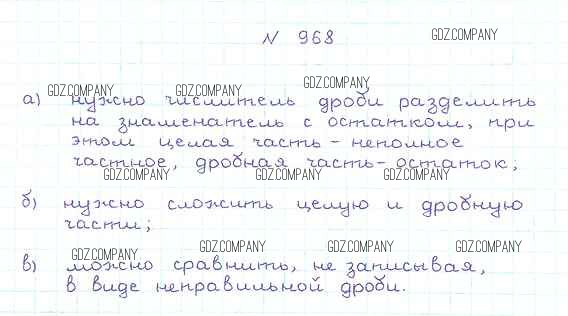 N 968
GDZ.COMPANY
GDZ.COMPANY
GDZ.COMPANY GDZ.COMPANY
а) нужно числитель дроби разделить
на знаменатель с остатком, при
этом целая часть - неполное
частное, дробная часть - остаток;
GDZ.COMPANY GDZ.COMPANY GDZ.COMPANY
б) нужно сложить целую и дробную
части;
GDZ.COMPANY GDZ.COMPANY GDZ.COMPANY GDZ.COMPANY
в) можно сравнить, не записывая,
в виде неправильной дроби.